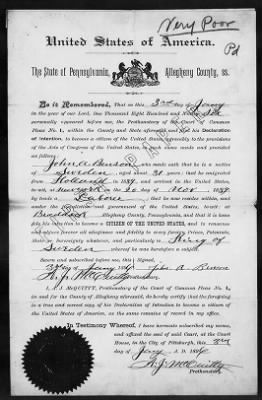 Very Poor
Pd
United States of America.
The State of Pennsylvania, Allegheny County, ss.
Be it Remembered, That on this 3rd day of Jany
in the year of our Lord, One Thousand Eight Hundred and Ninety
personally appeared before me, the Prothonotary of the Court of Common
Pleas No. 1, within the County and State aforesaid, and his Declaration
of Intention, to become a citizen of the United States agreeably to the provisions
of the Acts of Congress of the United States, in such case made and provided
John A. Benson, who made oath that he is a native
of Sweden, aged about 31 years; that he emigrated
from in 1889, and arrived in the United States,
to wit, at New York the 20 day of Nov 1889
being a Labour and that he now resides within, and
under the jurisdiction and government of the United States, to wit: at
Braddock Allegheny County, Pennsylvania, and that it is bona
fide his intention to become a CITIZEN OF THE UNITED STATES, and to renounce
forever all allegiance and fidelity to every foreign Prince, Potentate,
State or Sovereignty whatever, and particularly to King of
Sweden of whom he was heretofore a subject.
Sworn and subscribed before me this
day of Jany John A Benson
Prothonotary
I, J. McQUITTY, Prothonotary of the Court of Common Pleas No. 1, in
and for the County of Allegheny aforesaid, do hereby certify that the foregoing
is a true and correct copy of his Declaration of Intention to become a citizen of
the United States, as the same remains of record in my office.
In Testimony Whereof, I have hereunto subscribed my name,
and affixed the seal of said Court, at the Court
House, in the City of Pittsburgh, this 3rd
day of Jany A. D.
McQuitty
Prothonotary